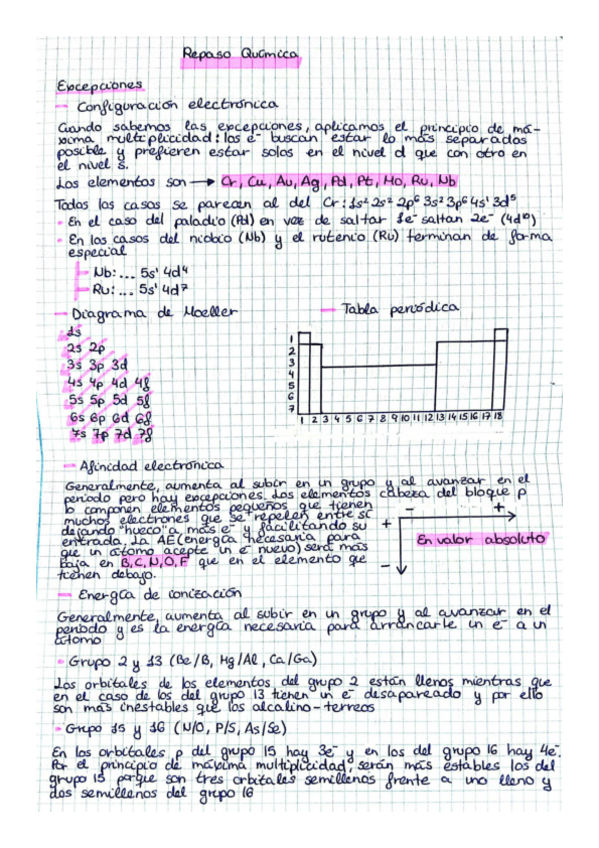 Repaso Química
Excepciones
- Configuración electrónica
Cuando sabemos las excepciones, aplicamos el principio de má-
xima multiplicidad: los e⁻ buscan estar lo más separados
posible y prefieren estar solos en el nivel d que con otro en
el nivel s.
Los elementos son → Cr, Cu, Au, Ag, Pd, Pt, Mo, Ru, Nb
Todos los casos se parecen al del Cr: 1s² 2s² 2p⁶ 3s² 3p⁶ 4s¹ 3d⁵
- En el caso del paladio (Pd) en vez de saltar 1e⁻ saltan 2e⁻ (4d¹⁰)
- En los casos del niobio (Nb) y el rutenio (Ru) terminan de forma
especial
- Nb: ... 5s¹ 4d⁴
- Ru: ... 5s¹ 4d⁷
- Diagrama de Moeller
1s
2s 2p
3s 3p 3d
4s 4p 4d 4f
5s 5p 5d 5f
6s 6p 6d 6f
7s 7p 7d 7f
- Tabla periódica
1
2
3
4
5
6
7
1 2 3 4 5 6 7 8 9 10 11 12 13 14 15 16 17 18
- Afinidad electrónica
Generalmente, aumenta al subir en un grupo y al avanzar en el
periodo pero hay excepciones. Los elementos cabeza del bloque p
lo componen elementos pequeños que tienen
muchos electrones que se repelen entre sí
dejando "hueco" a más e⁻ y facilitando su
entrada. La AE (energía necesaria para
que un átomo acepte un e⁻ nuevo) será más
baja en B, C, N, O, F que en el elemento que
tienen debajo.
- +
+
-
En valor absoluto
- Energía de ionización
Generalmente, aumenta al subir en un grupo y al avanzar en el
periodo y es la energía necesaria para arrancarle un e⁻ a un
átomo
• Grupo 2 y 13 (Be/B, Mg/Al, Ca/Ga)
Los orbitales de los elementos del grupo 2 están llenos mientras que
en el caso de los del grupo 13 tienen un e⁻ desapareado y por ello
son más inestables que los alcalino-terreos
• Grupo 15 y 16 (N/O, P/S, As/Se)
En los orbitales p del grupo 15 hay 3e⁻ y en los del grupo 16 hay 4e⁻.
Por el principio de máxima multiplicidad, serán más estables los del
grupo 15 porque son tres orbitales semillenos frente a uno lleno y
dos semillenos del grupo 16